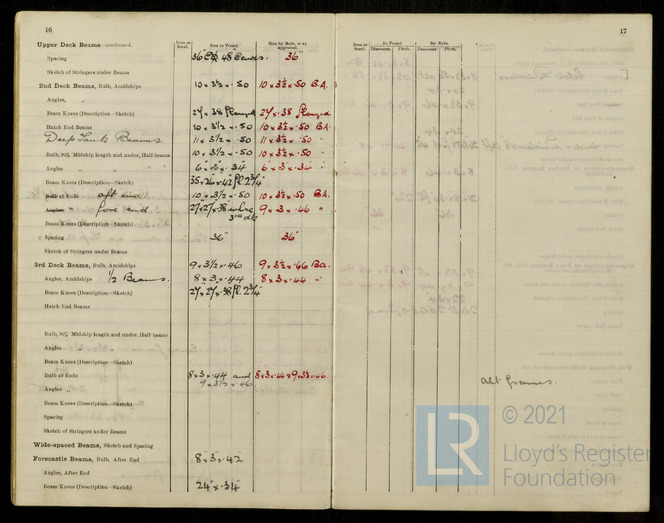 16
Upper Deck Beams—continued.
Iron or Steel.
Size in Vessel.
Size by Rule, or as approved.
Spacing 36" 48 Ends. 36"
Sketch of Stringers under Beams
2nd Deck Beams, Bulb, Amidships 10 x 3½ x .50 10 x 3½ x .50 B.A.
Angles, "
Beam Knees (Description—Sketch) 27 x .38 flanged 27 x .38 flanged
Hatch End Beams 10 x 3½ x .50 10 x 3½ x .50 B.A.
Deep Tank Beams 11 x 3½ x .50 11 x 3½ x .50 "
Bulb, 80%, 'Midship length and under, Half-beams 10 x 3½ x .50 10 x 3½ x .50 "
Angles " 6 x 3 x .34 6 x 3 x .34 "
Beam Knees (Description—Sketch) 35 x 26 x .42 fl. 2¾"
Bulb at Ends aft end. 10 x 3½ x .50 10 x 3½ x .50 B.A.
Angles " fore end 27 x 27 x .38 9 x 3 x .46 "
Beam Knees (Description—Sketch) 3rd dk
Spacing 36" 36"
Sketch of Stringers under Beams
3rd Deck Beams, Bulb, Amidships 9 x 3½ x .46 9 x 3½ x .46 Ba.
Angles, Amidships ½ Beams. 8 x 3 x .44 8 x 3 x .44 "
Beam Knees (Description—Sketch) 27 x 27 x .38 fl. 2¾"
Hatch End Beams
Bulb, 80%, 'Midship length and under, Half-beams
Angles " "
Beam Knees (Description—Sketch)
Bulb at Ends 8 x 3 x .44 and 8 x 3 x .44 & 9 x 3½ x .46
Angles " 9 x 3½ x .46
Beam Knees (Description—Sketch)
Spacing
Sketch of Stringers under Beams
Wide-spaced Beams, Sketch and Spacing
Forecastle Beams, Bulb, After End 8 x 3 x .42
Angles, After End
Beam Knees (Description—Sketch) 24 x .34"
17
Iron or Steel.
In Vessel.
By Rule.
Diameter. Pitch. Diameter. Pitch.
Alt frames.
© 2021
LR
Lloyd's Register
Foundation